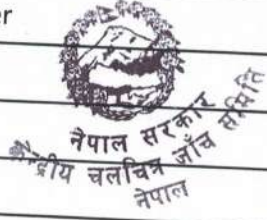 er
नेपाल सरकार
केन्द्रीय चलचित्र जाँच समिति
नेपाल